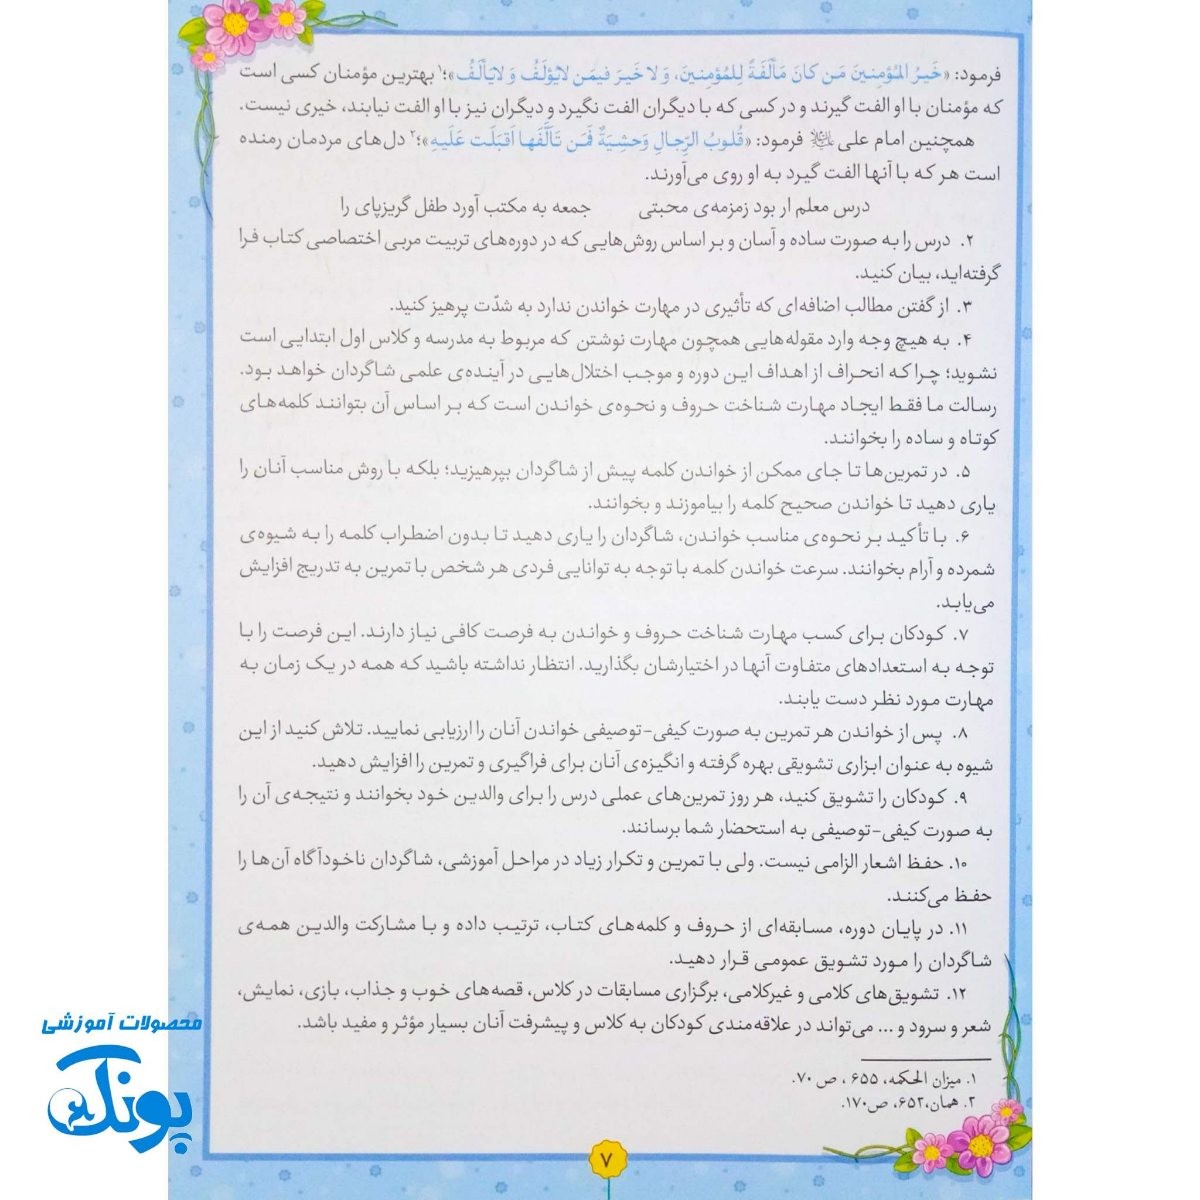 فرمود: «خَیرُ المُؤمِنینَ مَن کانَ مَألَفَةً لِلمُؤمِنینَ، وَ لا خَیرَ فیمَن لایُؤلَفُ وَ لایَألَفُ»؛۱ بهترین مؤمنان کسی است
که مؤمنان با او الفت گیرند و در کسی که با دیگران الفت نگیرد و دیگران نیز با او الفت نیابند، خیری نیست.
همچنین امام علی علیه‌السلام فرمود: «قُلوبُ الرِّجالِ وَحشِیَةٌ فَمَن تَألَّفَها اَقبَلَت عَلَیهِ»؛۲ دل‌های مردمان رمنده
است هر که با آنها الفت گیرد به او روی می‌آورند.
درس معلم ار بود زمزمه‌ی محبتی جمعه به مکتب آورد طفل گریزپای را
۲. درس را به صورت ساده و آسان و بر اساس روش‌هایی که در دوره‌های تربیت مربی اختصاصی کتاب فرا
گرفته‌اید، بیان کنید.
۳. از گفتن مطالب اضافه‌ای که تأثیری در مهارت خواندن ندارد به شدّت پرهیز کنید.
۴. به هیچ وجه وارد مقوله‌هایی همچون مهارت نوشتن که مربوط به مدرسه و کلاس اول ابتدایی است
نشوید؛ چرا که انحراف از اهداف این دوره و موجب اختلال‌هایی در آینده‌ی علمی شاگردان خواهد بود.
رسالت ما فقط ایجاد مهارت شناخت حروف و نحوه‌ی خواندن است که بر اساس آن بتوانند کلمه‌های
کوتاه و ساده را بخوانند.
۵. در تمرین‌ها تا جای ممکن از خواندن کلمه پیش از شاگردان بپرهیزید؛ بلکه با روش مناسب آنان را
یاری دهید تا خواندن صحیح کلمه را بیاموزند و بخوانند.
۶. با تأکید بر نحوه‌ی مناسب خواندن، شاگردان را یاری دهید تا بدون اضطراب کلمه را به شیوه‌ی
شمرده و آرام بخوانند. سرعت خواندن کلمه با توجه به توانایی فردی هر شخص با تمرین به تدریج افزایش
می‌یابد.
۷. کودکان برای کسب مهارت شناخت حروف و خواندن به فرصت کافی نیاز دارند. این فرصت را با
توجه به استعدادهای متفاوت آنها در اختیارشان بگذارید. انتظار نداشته باشید که همه در یک زمان به
مهارت مورد نظر دست یابند.
۸. پس از خواندن هر تمرین به صورت کیفی-توصیفی خواندن آنان را ارزیابی نمایید. تلاش کنید از این
شیوه به عنوان ابزاری تشویقی بهره گرفته و انگیزه‌ی آنان برای فراگیری و تمرین را افزایش دهید.
۹. کودکان را تشویق کنید، هر روز تمرین‌های عملی درس را برای والدین خود بخوانند و نتیجه‌ی آن را
به صورت کیفی-توصیفی به استحضار شما برسانند.
۱۰. حفظ اشعار الزامی نیست. ولی با تمرین و تکرار زیاد در مراحل آموزشی، شاگردان ناخودآگاه آن‌ها را
حفظ می‌کنند.
۱۱. در پایان دوره، مسابقه‌ای از حروف و کلمه‌های کتاب، ترتیب داده و با مشارکت والدین همه‌ی
شاگردان را مورد تشویق عمومی قرار دهید.
۱۲. تشویق‌های کلامی و غیرکلامی، برگزاری مسابقات در کلاس، قصه‌های خوب و جذاب، بازی، نمایش،
شعر و سرود و ... می‌تواند در علاقه‌مندی کودکان به کلاس و پیشرفت آنان بسیار مؤثر و مفید باشد.
۱. میزان الحکمه، ۶۵۵ ، ص ۷۰.
۲. همان،۶۵۲، ص۱۷۰.
۷
محصولات آموزشی
پونک